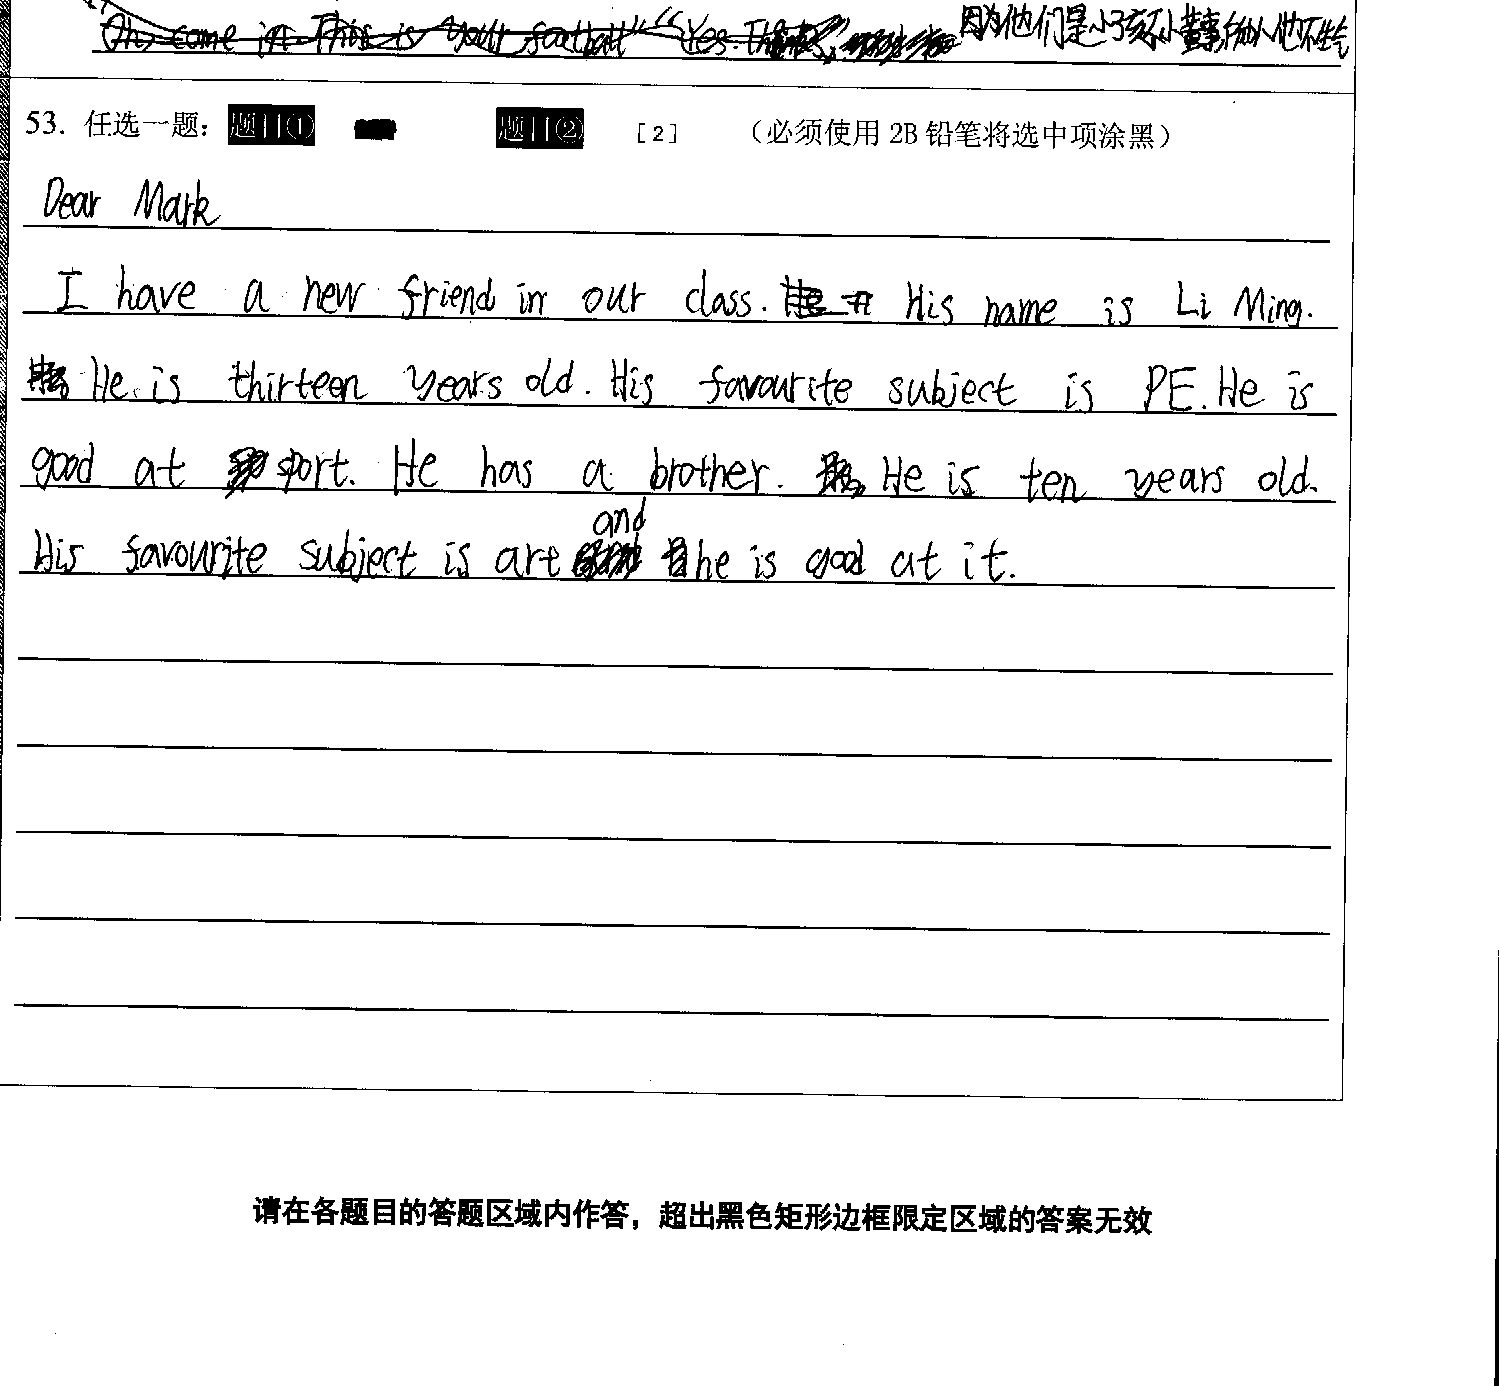 Oh, come in. This is your football" "Yes. 因为他们是小孩不小 他不生气
53. 任选一题: 题目① 题目② [2] (必须使用 2B 铅笔将选中项涂黑)
Dear Mark
I have a new friend in our class. His name is Li Ming.
He is thirteen years old. His favourite subject is PE. He is
good at sport. He has a brother. He is ten years old.
and
His favourite subject is art he is good at it.
请在各题目的答题区域内作答，超出黑色矩形边框限定区域的答案无效